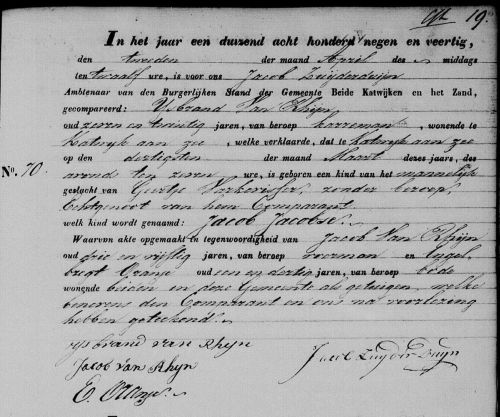 19.
In het jaar een duizend acht honderd negen en veertig,
den tweeden der maand April des middags
ten twaalf ure, is voor ons Jacob Zuyderduijn
Ambtenaar van den Burgerlijken Stand der Gemeente Beide Katwijken en het Zand,
gecompareerd: IJsbrand Van Rhijn
oud zeven en twintig jaren, van beroep wonende te
Katwijk aan zee, welke verklaarde, dat te Katwijk aan zee
op den dertigsten der maand Maart dezes jaars, des
No. 70. avond ten zeven ure, is geboren een kind van het mannelijk
geslacht van zonder beroep,
Echtgenoot van hem Comparant
welk kind wordt genaamd: Jacob Jacobse.
Waarvan akte opgemaakt in tegenwoordigheid van Jacob Van Rhijn
oud drie en vijftig jaren, van beroep voerman en Engel
bregt Oranje oud een en dertig jaren, van beroep bode
wonende beiden in deze Gemeente als getuigen, welke
benevens den Comparant en ons na voorlezing
hebben geteekend.
ijsbrand van Rhijn
Jacob Zuyderduyn
Jacob van Rhyn
E. Oranje